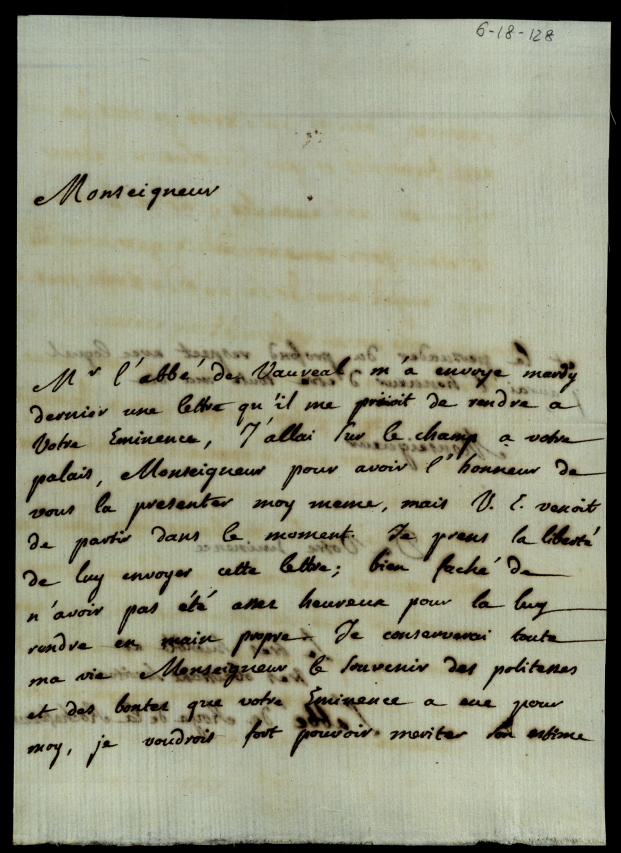 6-18-128
Monseigneur
Mr l'abbé de Vaureal m'a envoye mardy
dernier une lettre qu'il me prioit de rendre a
Votre Eminence, J'allai sur le champ a votre
palais, Monseigneur pour avoir l'honneur de
vous la presenter moy meme, mais V. E. venoit
de partir dans le moment. Je prens la liberté
de luy envoyer cette lettre; bien faché de
n'avoir pas été assez heureux pour la luy
rendre en main propre. Je conserverai toute
ma vie Monseigneur le souvenir des politesses
et des bontez que votre Eminence a eue pour
moy, je voudrois fort pouvoir meriter son estime